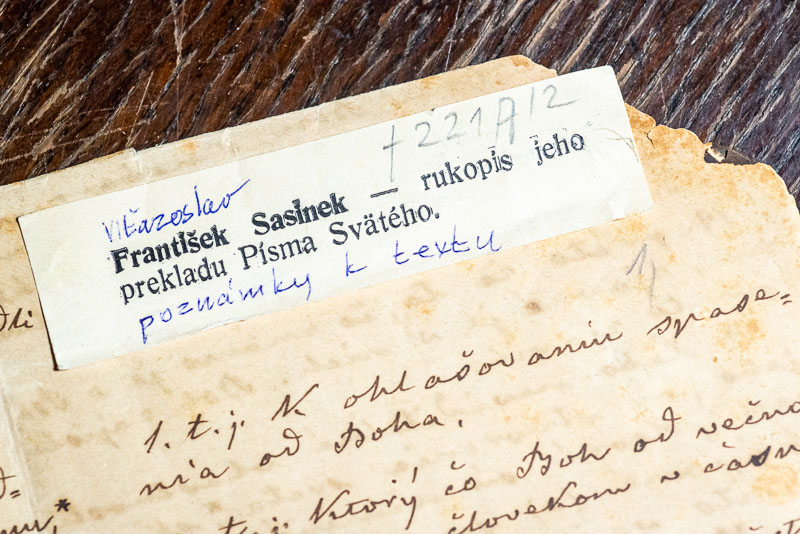 +221A/2
Víťazoslav
František Sasinek — rukopis jeho
prekladu Písma Svätého.
poznámky k textu
1/
1. t. j. K ohlašovaniu spase=
nia od Boha.
t. j. Ktorý čo Boh od večno
človekom v časn